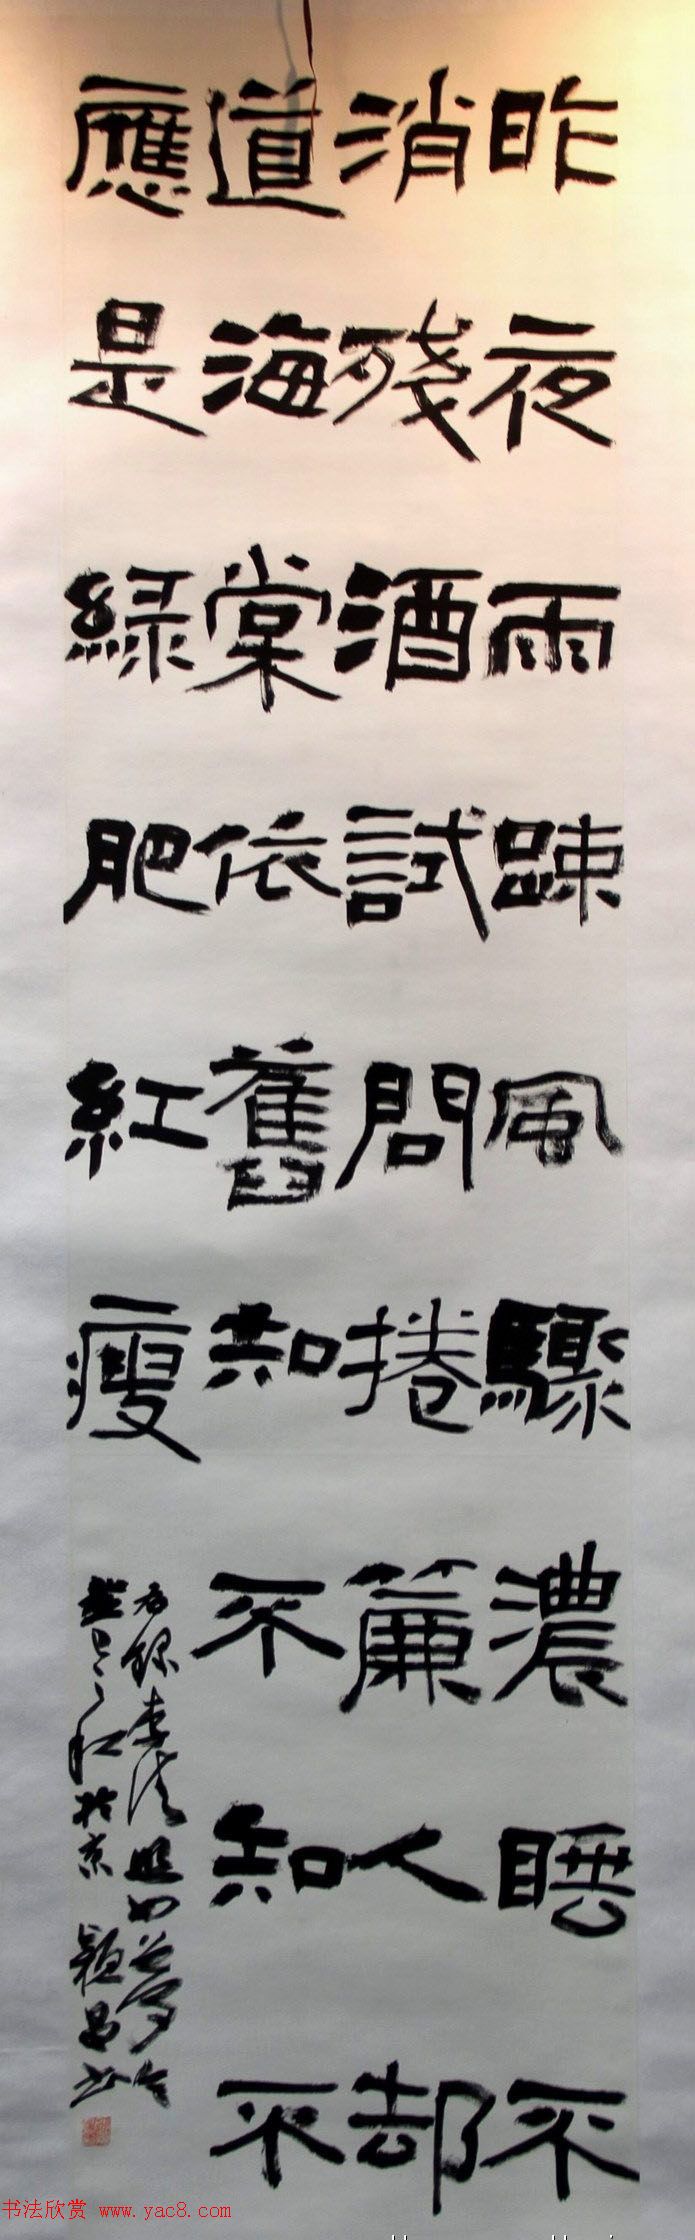 昨夜雨踈風驟濃睡不
消殘酒試問捲簾人却
道海棠依舊知不知不
應是綠肥紅瘦
右録李清照如夢令
癸巳之秋於京 穎昌书
书法欣赏 www.yac8.com